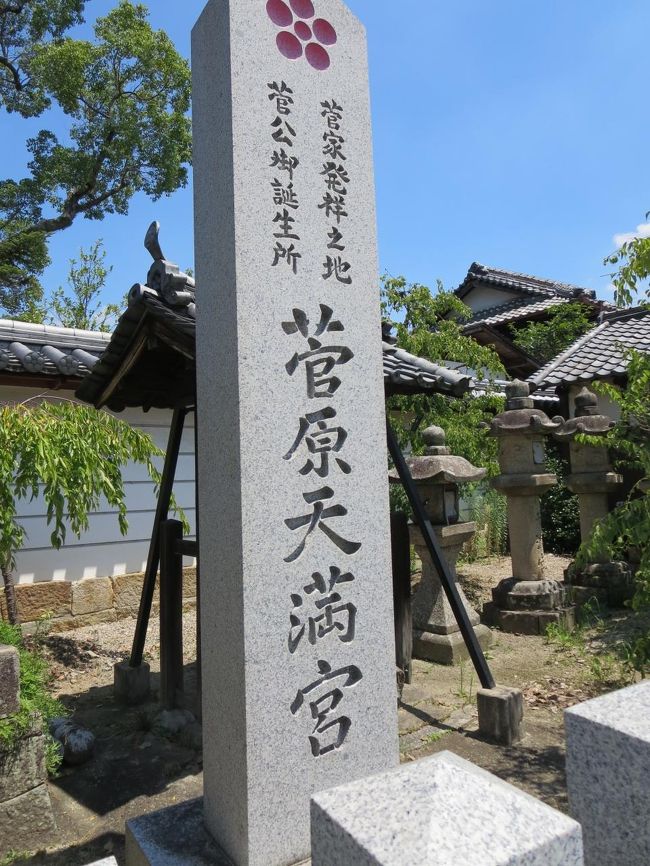 菅家発祥之地
菅公御誕生所
菅原天満宮